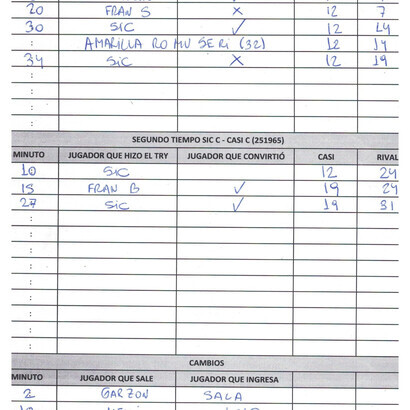 20 FRAN S ✗ 12 7
30 SIC ✓ 12 14
: AMARILLA ROMU SERI (32) 12 14
34 SIC ✗ 12 19
:
:
:
SEGUNDO TIEMPO SIC C - CASI C (251965)
MINUTO JUGADOR QUE HIZO EL TRY JUGADOR QUE CONVIRTIÓ CASI RIVAL
10 SIC 12 24
18 FRAN B ✓ 19 24
27 SIC ✓ 19 31
:
:
:
:
:
:
:
:
CAMBIOS
MINUTO JUGADOR QUE SALE JUGADOR QUE INGRESA
2 GARZON SALA